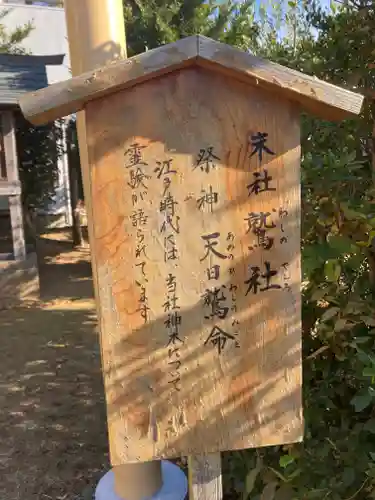 末社 鷲社
わしの やしろ
祭神 天日鷲命
あめのひわしのみこと
江戸時代には、当社神木について
霊験が、語られています